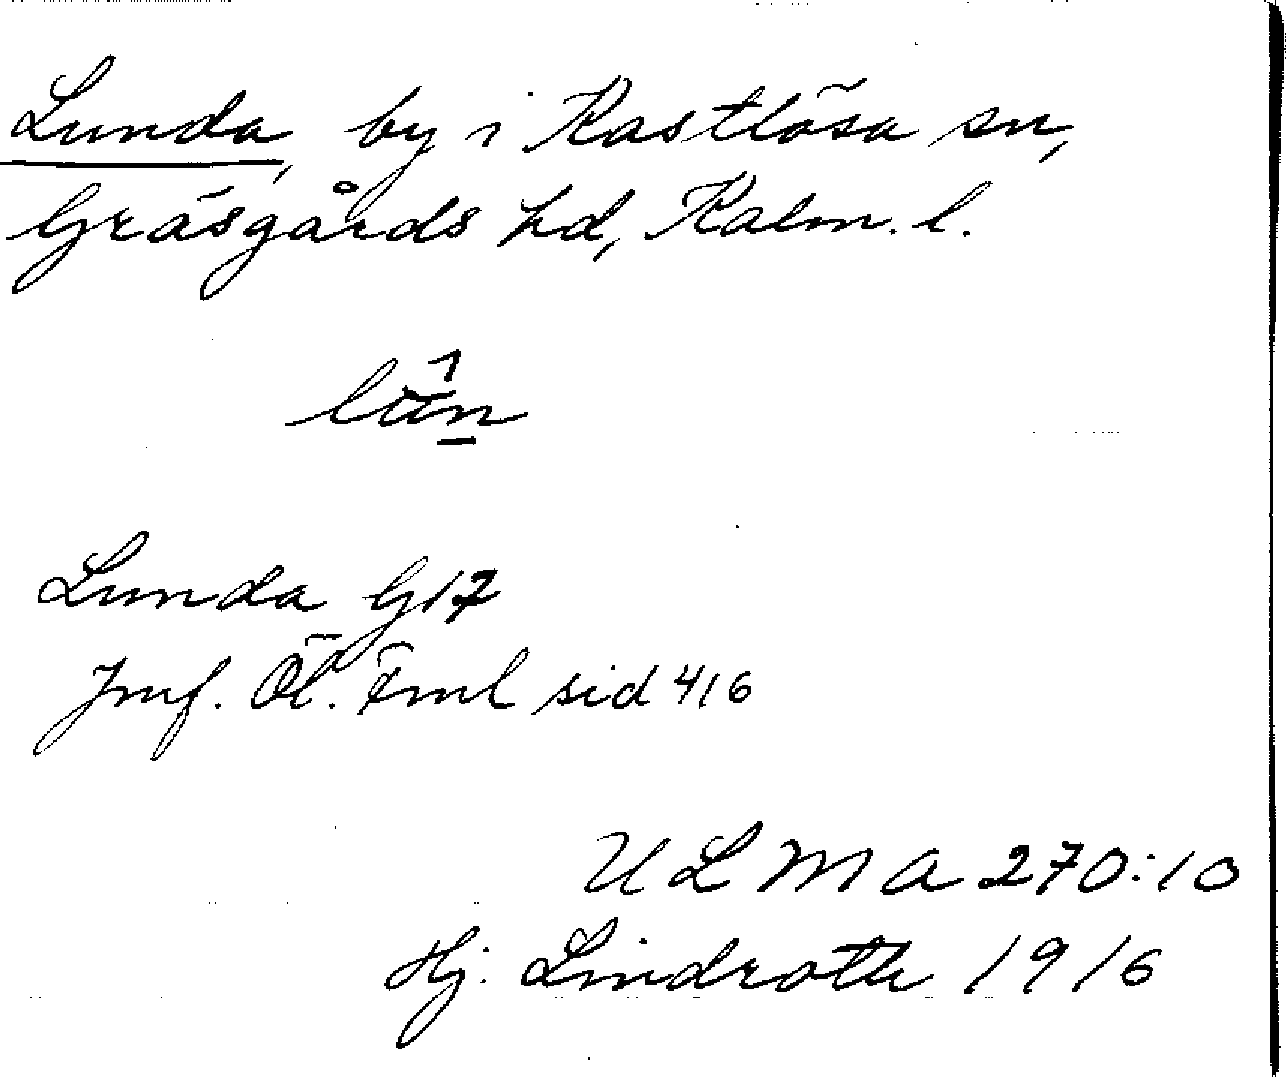 Lunda, by i Kastlösa sn,
Gräsgårds hd, Kalm. l.
Lunda G17
Jmf. Öl. Fml sid 416
ULMA 270:10
Hj. Lindroth 1916